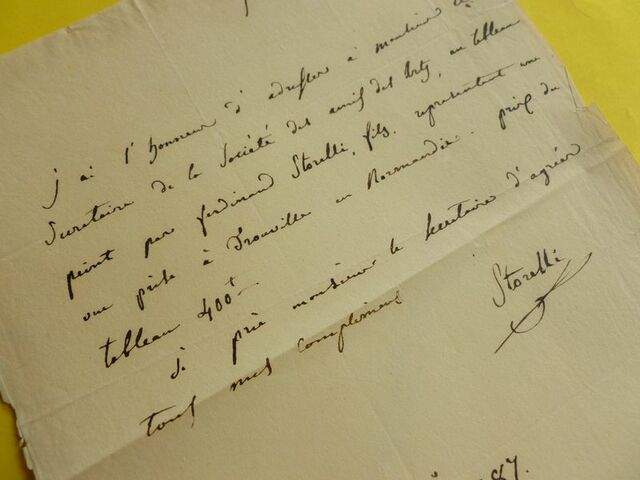 j'ai l'honneur d'adresser à monsieur le
Secretaire de la Société des amis des Arts, un tableau
peint par ferdinand Storelli, fils. representant une
vue prise à Trouville en Normandie. prix du
tableau 400f
je prie monsieur le Secretaire d'agréer
tous mes compliments
Storelli
87.